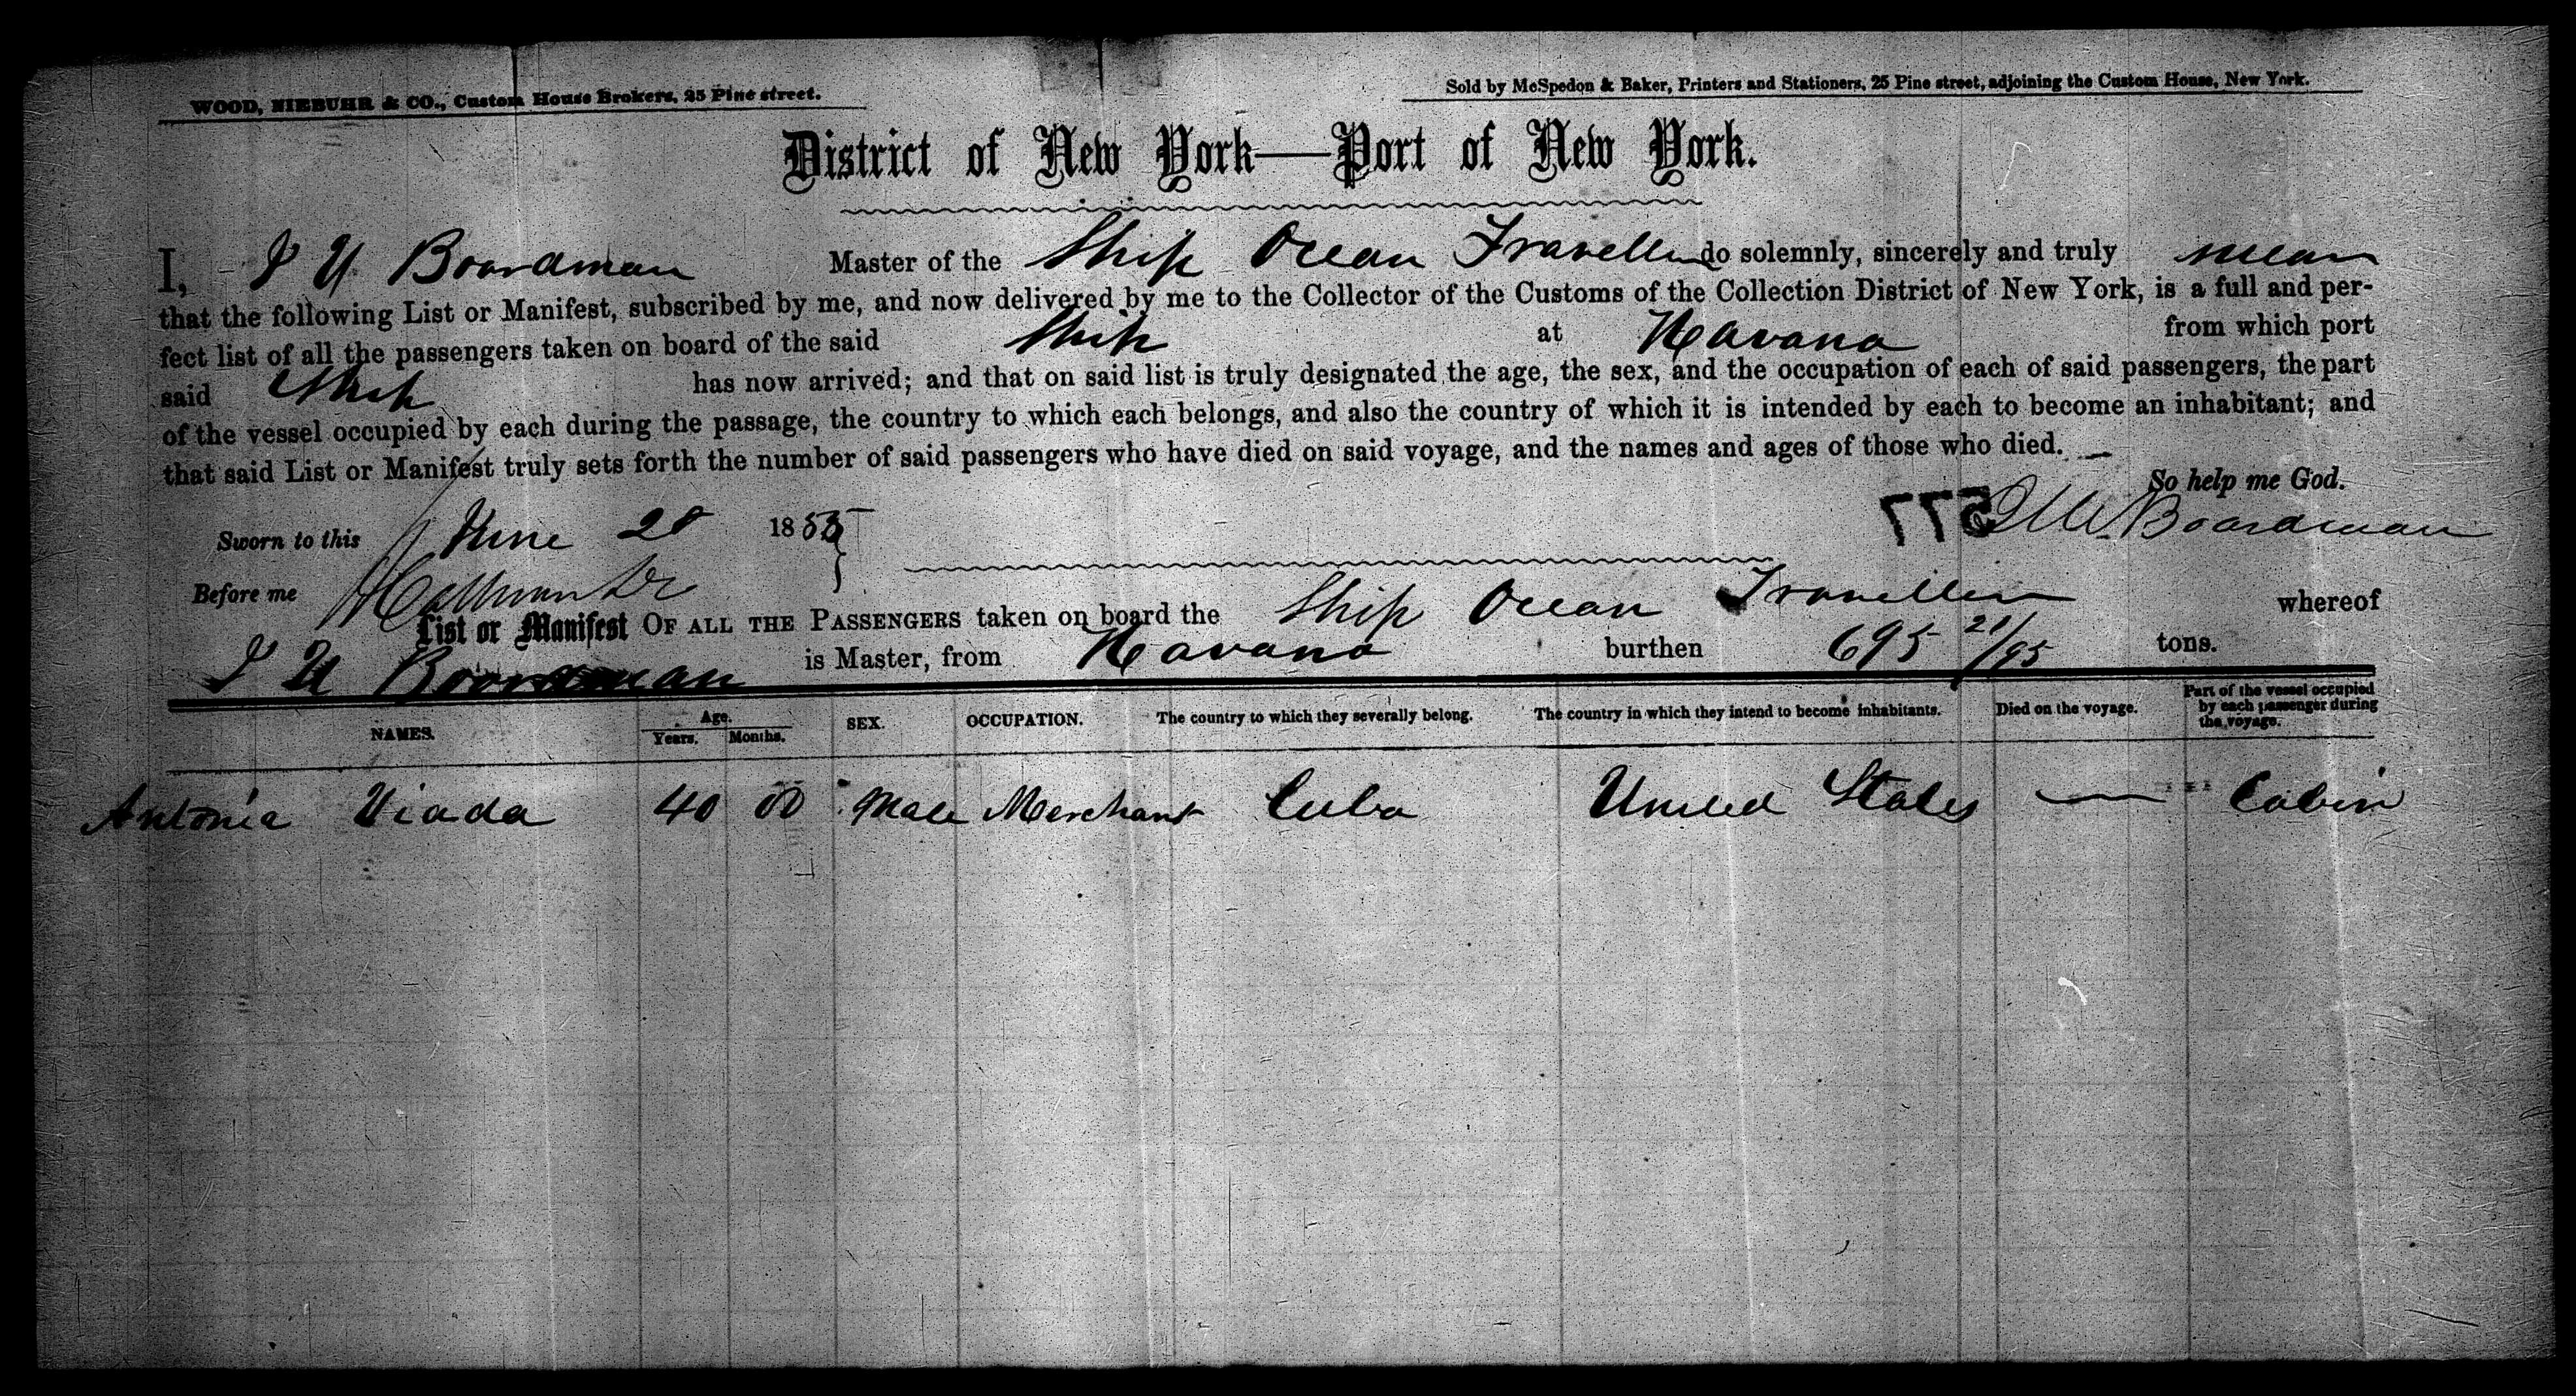 WOOD, NIEBUHR & CO., Custom House Brokers, 25 Pine street.
Sold by McSpedon & Baker, Printers and Stationers, 25 Pine street, adjoining the Custom House, New York.
District of New York—Port of New York.
I, Boardman Master of the Ship Ocean Traveller do solemnly, sincerely and truly swear
that the following List or Manifest, subscribed by me, and now delivered by me to the Collector of the Customs of the Collection District of New York, is a full and per-
fect list of all the passengers taken on board of the said Ship at Havana from which port
said Ship has now arrived; and that on said list is truly designated the age, the sex, and the occupation of each of said passengers, the part
of the vessel occupied by each during the passage, the country to which each belongs, and also the country of which it is intended by each to become an inhabitant; and
that said List or Manifest truly sets forth the number of said passengers who have died on said voyage, and the names and ages of those who died.
So help me God.
Sworn to this June 28 1855 577 Boardman
Before me
List or Manifest OF ALL THE PASSENGERS taken on board the Ship Ocean Traveller whereof
Boardman is Master, from Havana burthen 695 21/95 tons.
NAMES. Age. Years. Months. SEX. OCCUPATION. The country to which they severally belong. The country in which they intend to become inhabitants. Died on the voyage. Part of the vessel occupied by each passenger during the voyage.
Antonia Viada 40 00 Male Merchant Cuba United States — Cabin